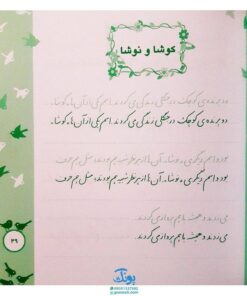 کوشا و نوشا
دو پرنده‌ی کوچک در جنگلی زندگی می‌کردند. اسم یکی از آن‌ها، کوشا
دو پرنده‌ی کوچک در جنگلی زندگی می‌کردند. اسم یکی از آن‌ها، کوشا
بود و اسم دیگری، نوشا. آن‌ها از هر نظر شبیه هم بودند، مثل هم حرف
بود و اسم دیگری، نوشا. آن‌ها از هر نظر شبیه هم بودند، مثل هم حرف
می‌زدند و همیشه با هم پرواز می‌کردند.
می‌زدند و همیشه با هم پرواز می‌کردند.
۲۹
پونک